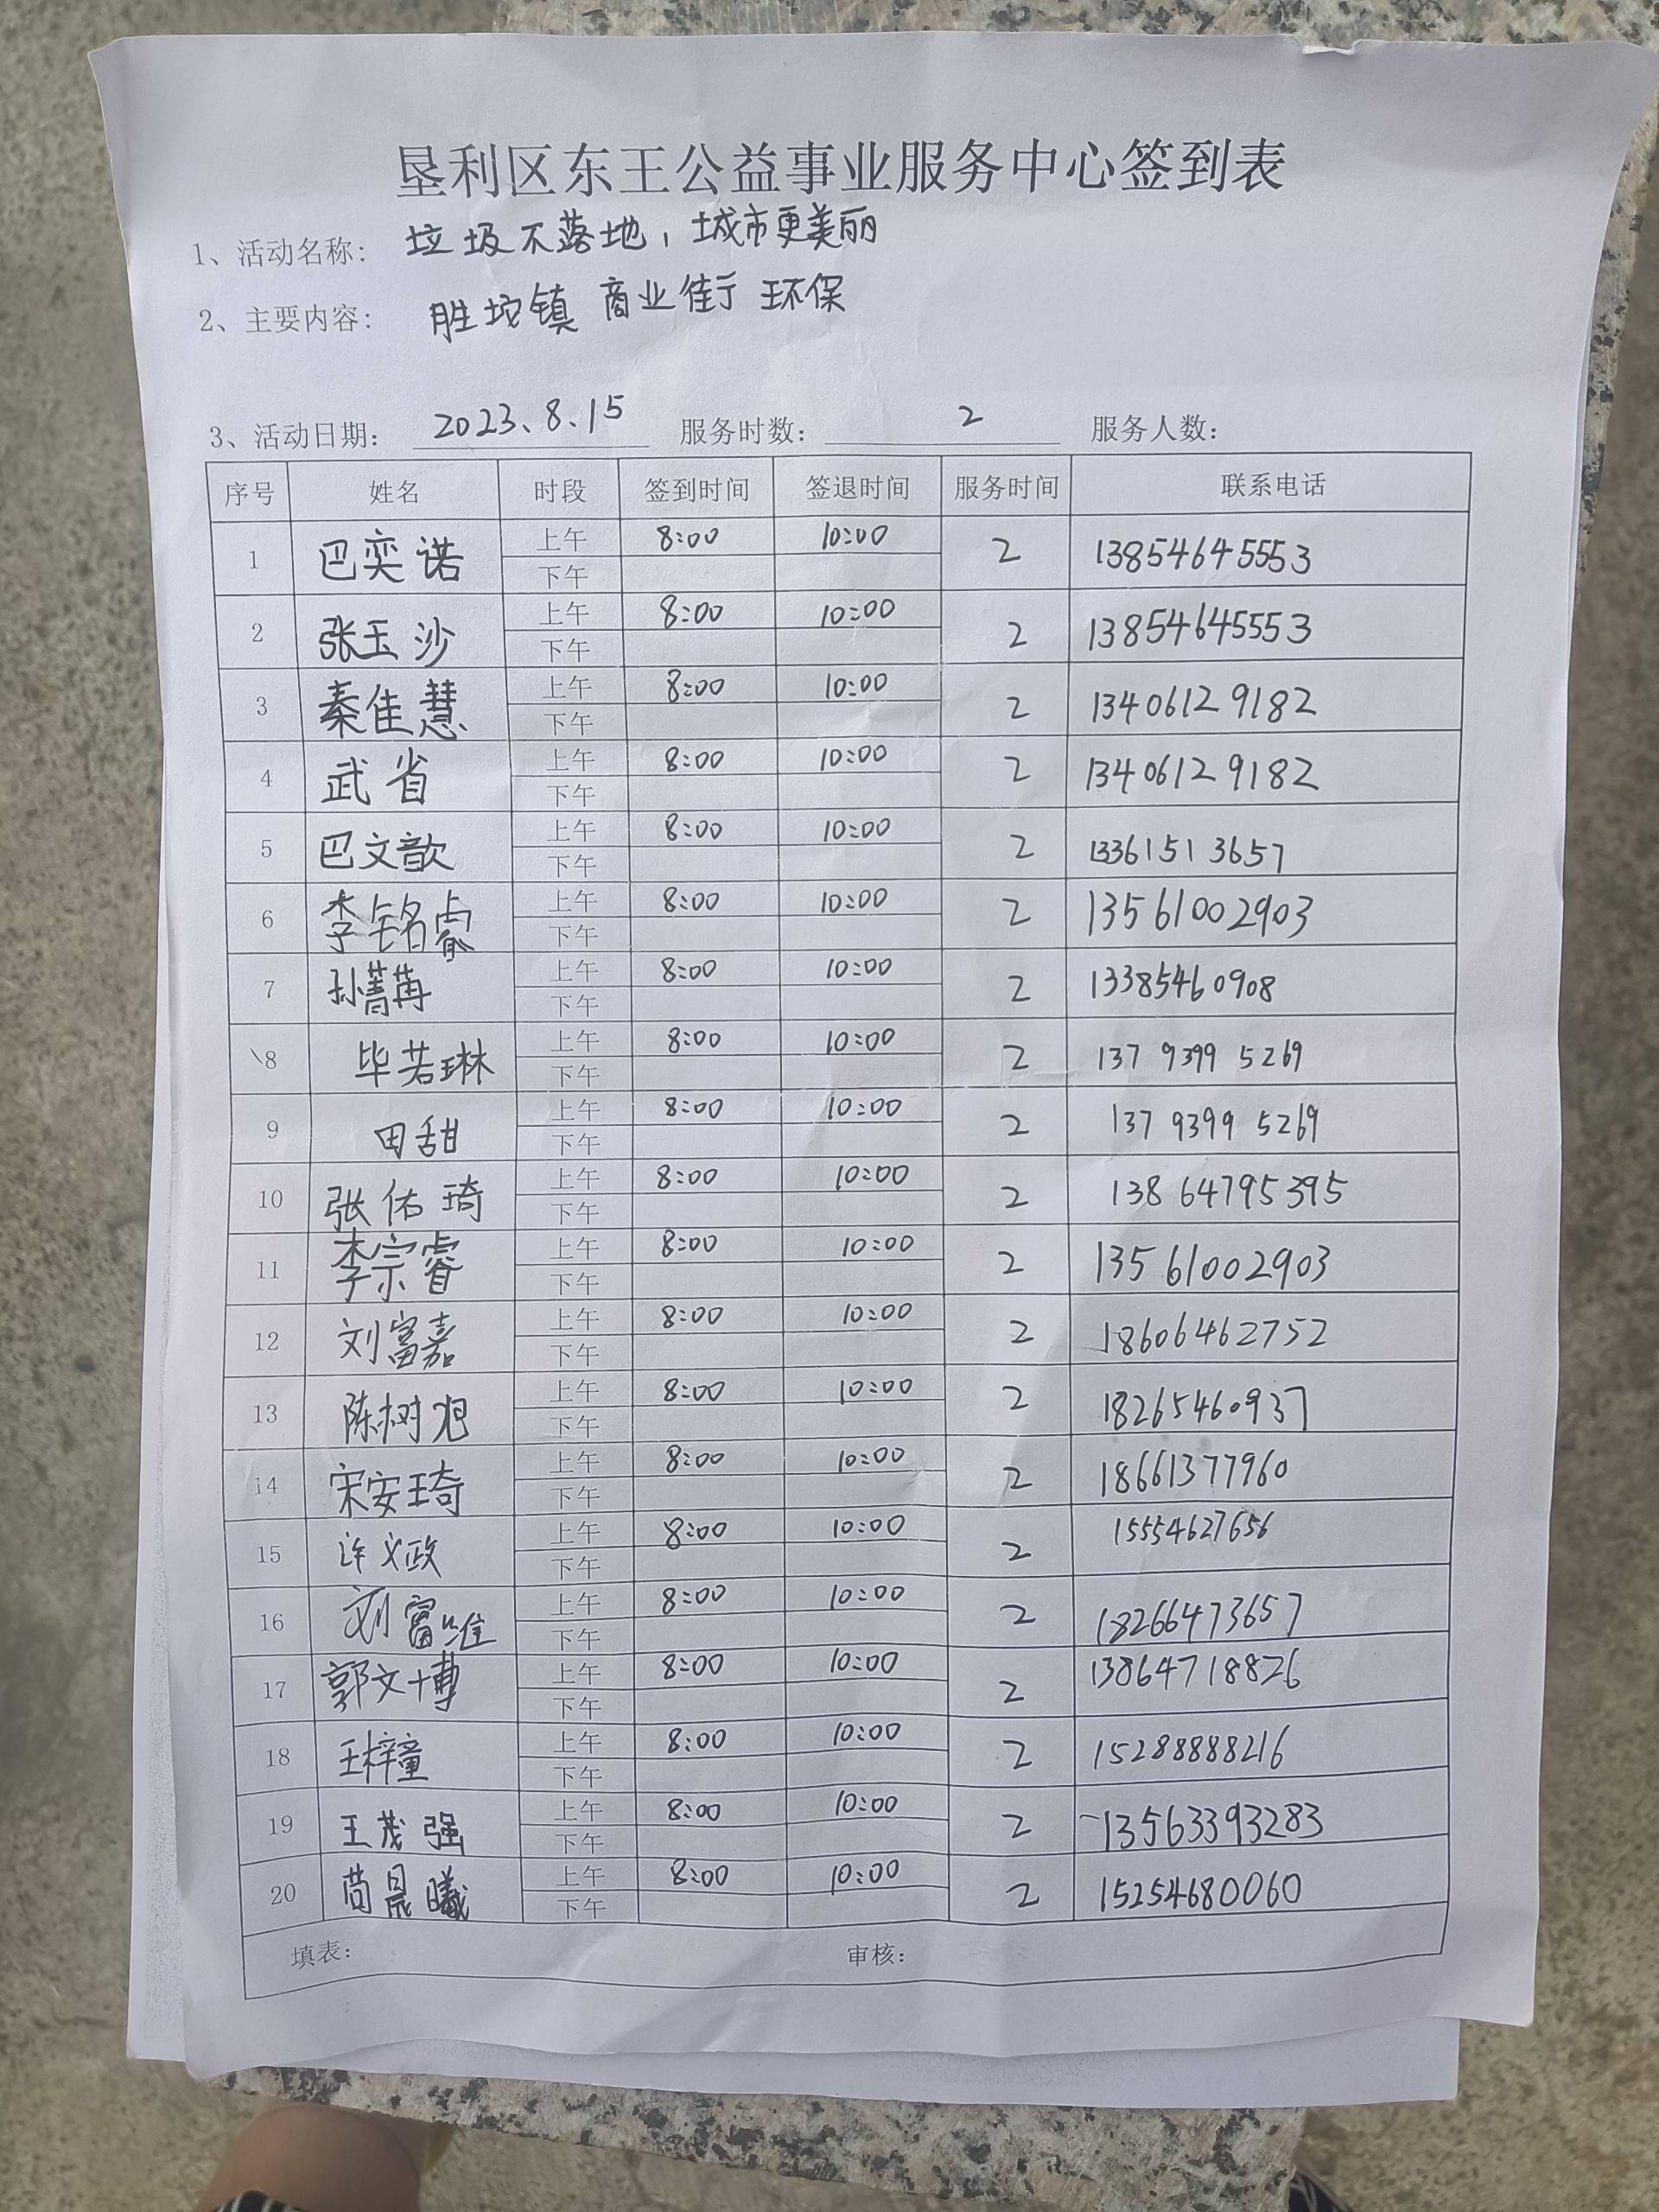 垦利区东王公益事业服务中心签到表
1、活动名称: 垃圾不落地，城市更美丽
2、主要内容: 胜坨镇 商业街 环保
3、活动日期: 2023、8、15 服务时数: 2 服务人数:
序号 姓名 时段 签到时间 签退时间 服务时间 联系电话
1 巴奕诺 上午 8:00 10:00 2 13854645553
下午
2 张玉沙 上午 8:00 10:00 2 13854645553
下午
3 秦佳慧 上午 8:00 10:00 2 13406129182
下午
4 武省 上午 8:00 10:00 2 13406129182
下午
5 巴文歆 上午 8:00 10:00 2 13361513657
下午
6 李铭睿 上午 8:00 10:00 2 13561002903
下午
7 孙菁苒 上午 8:00 10:00 2 13385460908
下午
8 毕若琳 上午 8:00 10:00 2 137 9399 5269
下午
9 田甜 上午 8:00 10:00 2 137 9399 5269
下午
10 张佑琦 上午 8:00 10:00 2 138 64795395
下午
11 李宗睿 上午 8:00 10:00 2 13561002903
下午
12 刘富嘉 上午 8:00 10:00 2 18606462752
下午
13 陈树 上午 8:00 10:00 2 18265460937
下午
14 宋安琦 上午 8:00 10:00 2 18661377960
下午
15 许文政 上午 8:00 10:00 2 15554627656
下午
16 刘富唯 上午 8:00 10:00 2 18266473657
下午
17 郭文博 上午 8:00 10:00 2 13864718826
下午
18 王梓童 上午 8:00 10:00 2 15288888216
下午
19 王茂强 上午 8:00 10:00 2 13563393283
下午
20 晨曦 上午 8:00 10:00 2 15254680060
下午
填表: 审核: